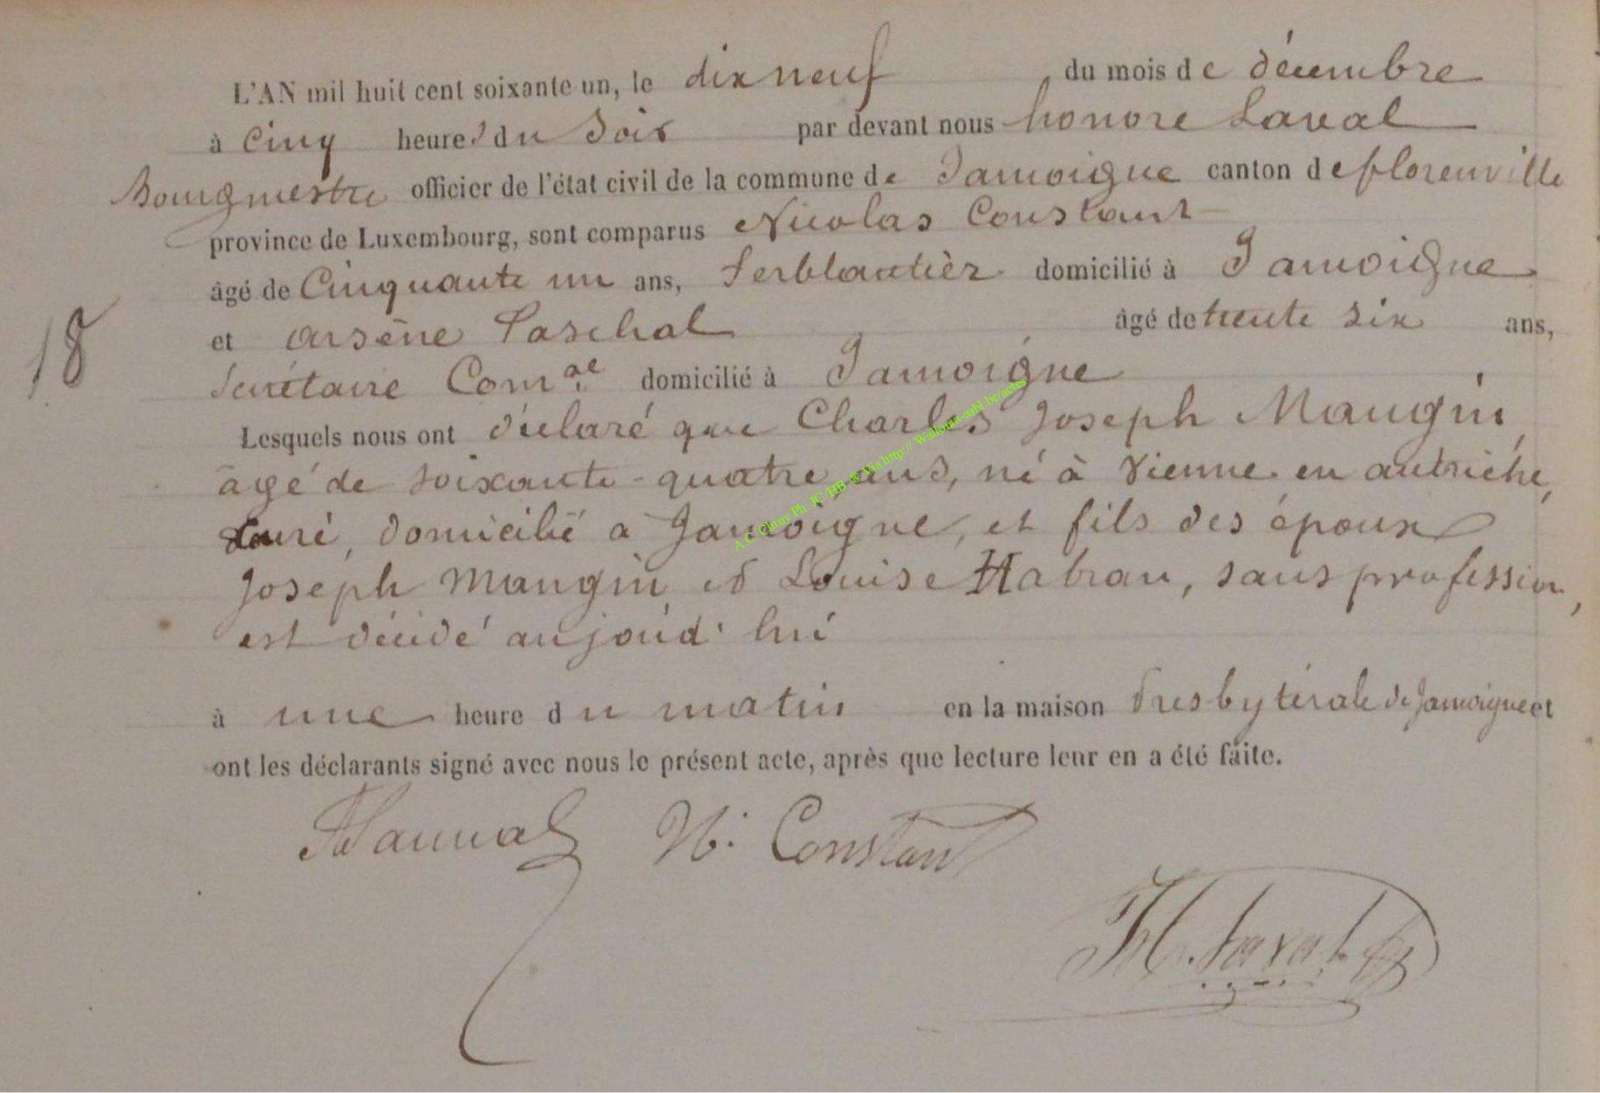 L'AN mil huit cent soixante un, le dix neuf du mois de décembre
à cinq heures du Soir par devant nous honoré Laval
Bourgmestre officier de l'état civil de la commune de Jamoigne canton de florenville
province de Luxembourg, sont comparus Nicolas Constant
âgé de Cinquante un ans, ferblantièr domicilié à Jamoigne
et arsène Paschal âgé de trente six ans,
18
Secrétaire Com.al domicilié à Jamoigne
Lesquels nous ont déclaré que Charles Joseph Mangin,
âgé de soixante-quatre ans, né à Vienne en autriche,
Curé, domicilié à Jamoigne, et fils des époux
Joseph Mangin et Louise Habran, sans profession,
est décédé aujourd'hui
à une heure du matin en la maison Presbytérale de Jamoigne et
ont les déclarants signé avec nous le présent acte, après que lecture leur en a été faite.
N. Constant
H. Laval